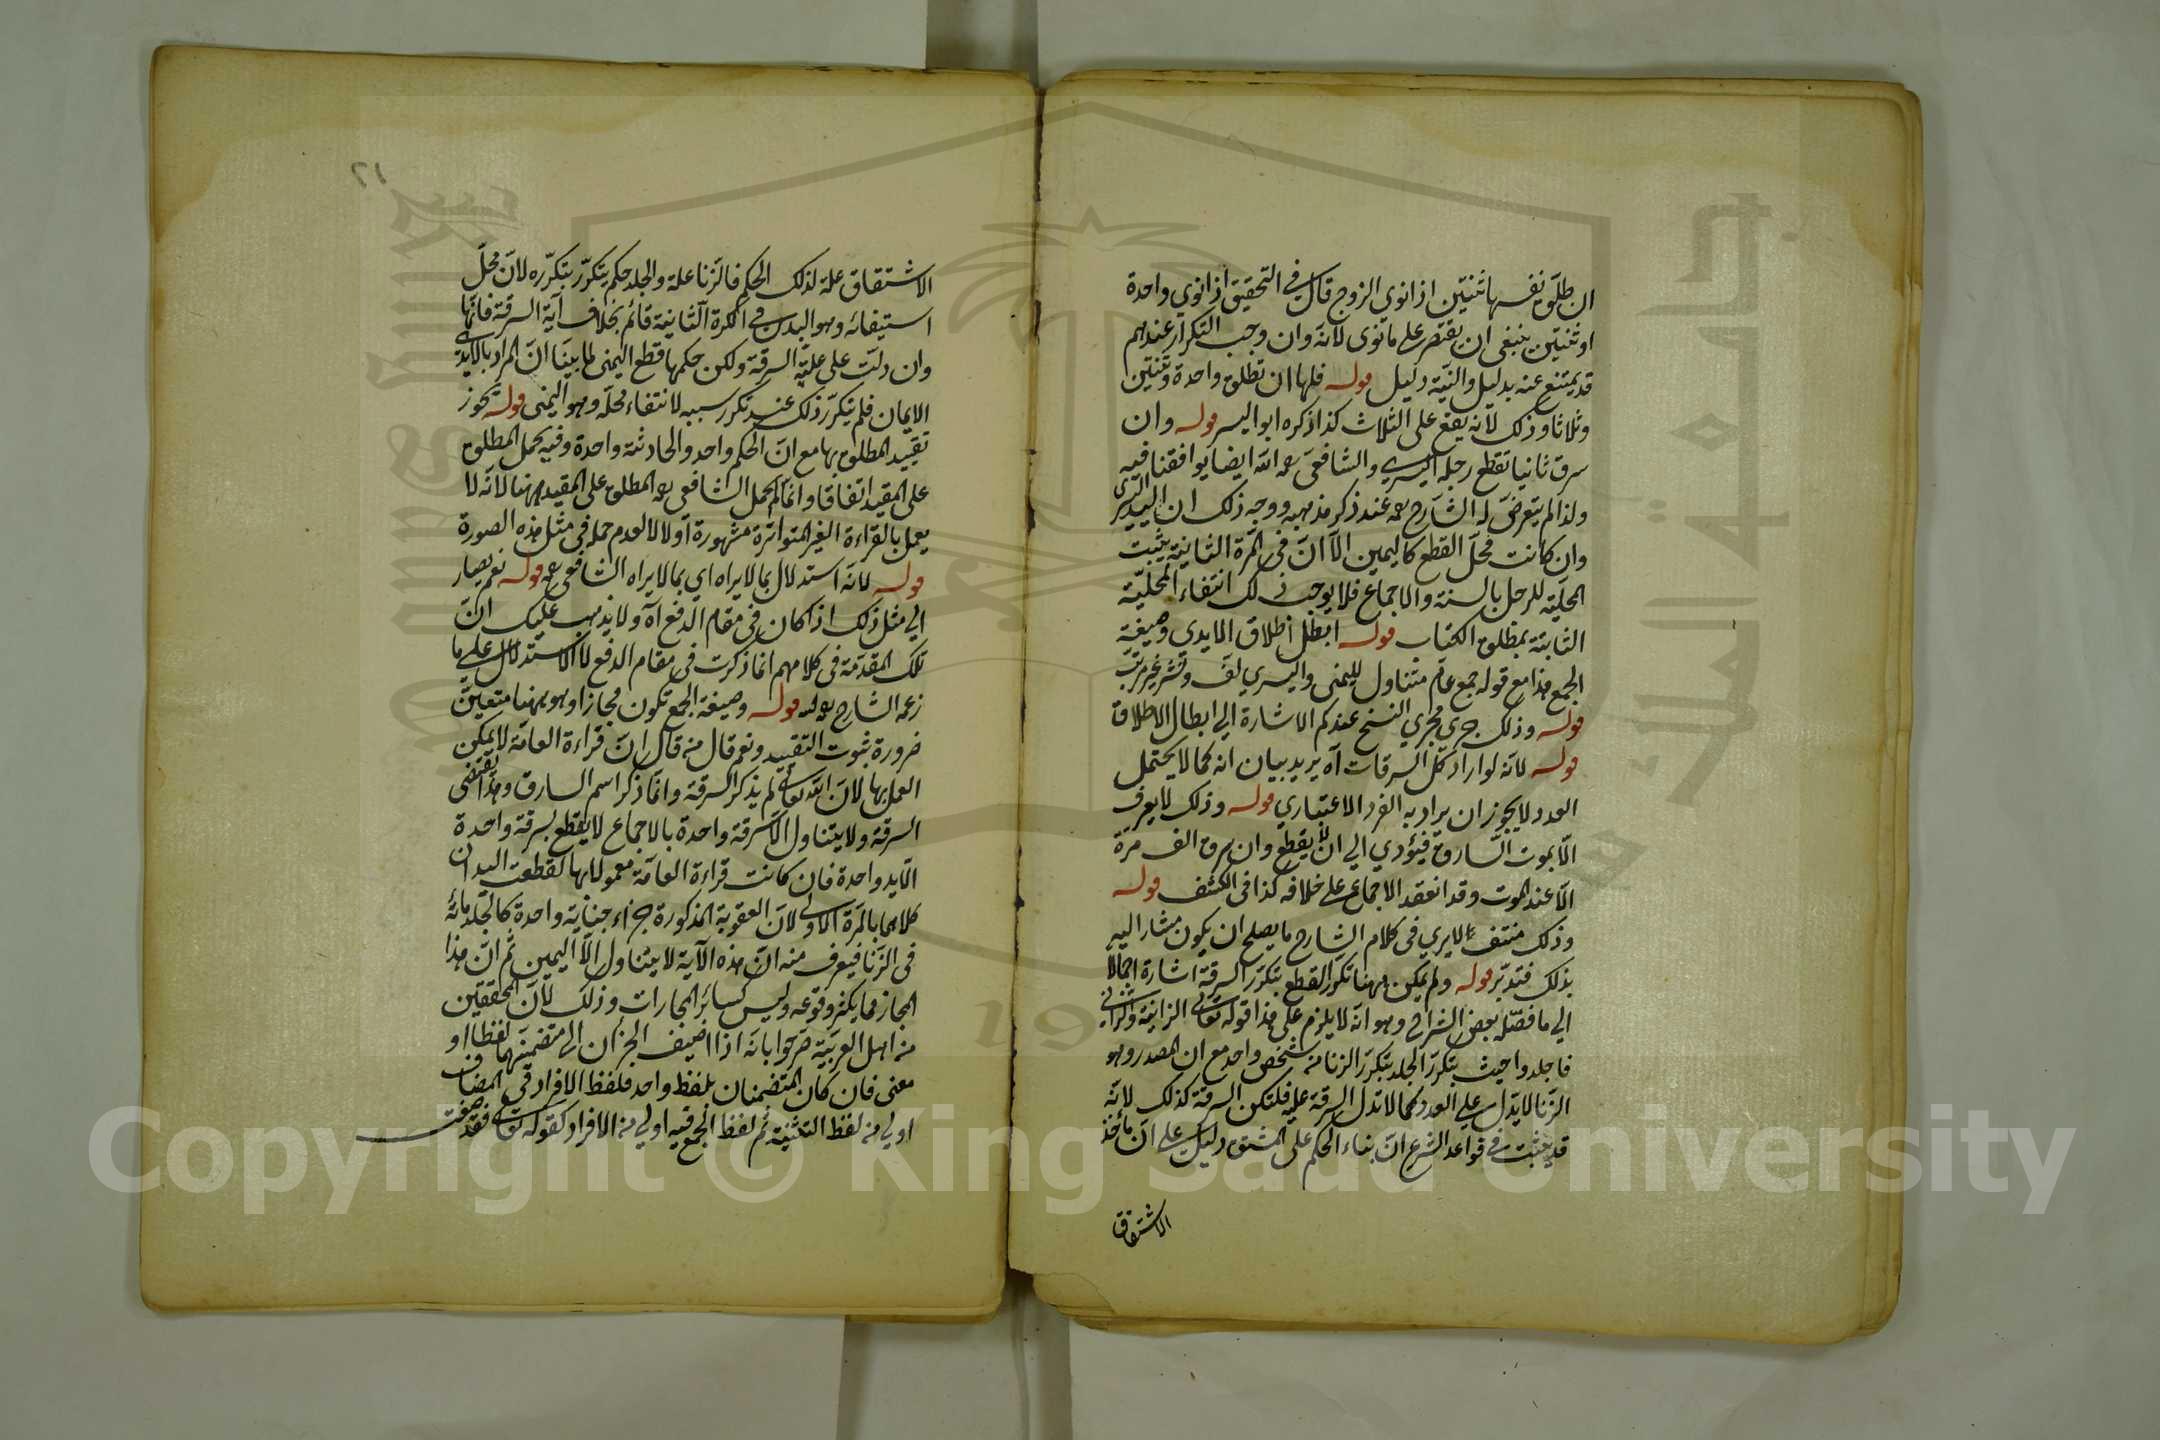 ان طلق نفسها ثنتين اذا نوي الزوج قال في التحقيق اذا نوي واحدة
او ثنتين ينبغى ان يقتصر على ما نوى لانه وان وجب التكرار عندهم
قد يمتنع عنه بدليل والنية دليل قوله فلها ان تطلق واحدة وثنتين
وثلاثا وذلك لانه يقع على الثلاث كذا ذكره ابو اليسر قوله وان
سرق ثانيا تقطع رجله اليسري والشافعى رحمه الله ايضا يوافقنا فيه
ولذا لم يتعرض له الشارح رحمه عند ذكر مذهبه ووجه ذلك ان اليد اليسرى
وان كانت محل القطع كاليمين الا ان فى المرة الثانية يثبت
المحلية للرجل بالسنة والاجماع فلا يوجب ذلك انتفاء المحلية
الثابتة بمطلق الكتاب قوله ابطل اطلاق الايدي وصيغة
الجمع هذا مع قوله جمع عام متناول لليمنى واليسري لف ونشر غير مرتب
قوله وذلك جري مجري النسخ عندكم الاشارة الي ابطال الاطلاق
قوله لانه لو اراد كل السرقات آه يريد بيان انه كما لا يحتمل
العدد لا يجوز ان يراد به الفرد الاعتباري قوله وذلك لا يعرف
الا بموت السارق فيؤدي الي ان لا يقطع وان سرق الف مرة
الا عند الموت وقد انعقد الاجماع على خلافه كذا فى الكشف قوله
وذلك منتف لا يري فى كلام الشارح ما يصلح ان يكون مشارا اليه
بذلك فتدبر قوله ولم يمكن ههنا تكرر القطع بتكرر السرقة اشارة اجمالا
الي ما فصله بعض الشراح وهو انه لا يلزم على هذا قوله تعالى الزانية والزانى
فاجلدوا حيث يتكرر الجلد بتكرر الزنا من شخص واحد مع ان المصدر وهو
الزنا لا يدل على العدد كما لا تدل السرقة عليه فلتكن السرقة كذلك لانه
قد يثبت فى قواعد الشرع ان بناء الحكم على المشتق دليل على ان ماخذ
الاشتقاق
٢١
الاشتقاق علة لذلك الحكم فالزنا علة والجلد حكم يتكرر بتكرره لان محل
استيفائه وهو البدن في الكرة الثانية قائم بخلاف آية السرقة فانها
وان دلت علي علية السرقة ولكن حكمها قطع اليمنى لما بينا ان المراد بالايدى
الايمان فلم يتكرر ذلك عند تكرر سببه لانتفاء محله وهو اليمنى قوله تجوز
تقييد المطلق بها مع ان الحكم واحد والحادثة واحدة وفيه يحمل المطلق
على المقيد اتفاقا وانما لم يحمل الشافعى رحمه المطلق على المقيد ههنا لانه لا
يعمل بالقراءة الغير المتواترة مشهورة او لا لا لعدم حمله فى مثل هذه الصورة
قوله لانه استدلال بما لا يراه اي بما لا يراه الشافعى رحمه قوله نعم يصار
الي مثل ذلك اذا كان فى مقام الدفع آه ولا يذهب عليك ان
تلك المقدمة فى كلامهم انما ذكرت فى مقام الدفع لا الاستدلال على ما
زعمه الشارح قوله وصيغة الجمع تكون مجازا وهو ههنا متعين
ضرورة ثبوت التقييد ونعم قال من قال ان قراءة العامة لا يمكن
العمل بها لان الله تعالى لم يذكر السرقة وانما ذكر اسم السارق وهذا يقتضى
السرقة ولا يتناول الا سرقة واحدة بالاجماع لا يقطع بسرقة واحدة
الا يد واحدة فان كانت قراءة العامة معمولا بها لقطعت اليدان
كلاهما بالمرة الاولى لان العقوبة المذكورة جزاء جناية واحدة كالجلد مائة
فى الزنا فيعرف منه ان هذه الآية لا يتناول الا اليمين ثم ان هذا
المجاز مما يكثر وقوعه وليس كسائر المجازات وذلك لان المحققين
من اهل العربية صرحوا بانه اذا اضيف الجزءان الى متضمنهما لفظا او
معنى فان كان المتضمنان بلفظ واحد فلفظ الافراد فى المضاف
اولي من لفظ التثنية ثم لفظ الجمع فيه اولي من الافراد كقوله تعالى فقد صغت
Copyright © King Saud University